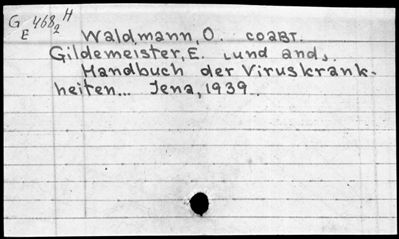 G 468₂ H
E
Waldmann, O. соавт.
Gildemeister, E. [und and].
Handbuch der Viruskrank-
heiten... Jena, 1939.